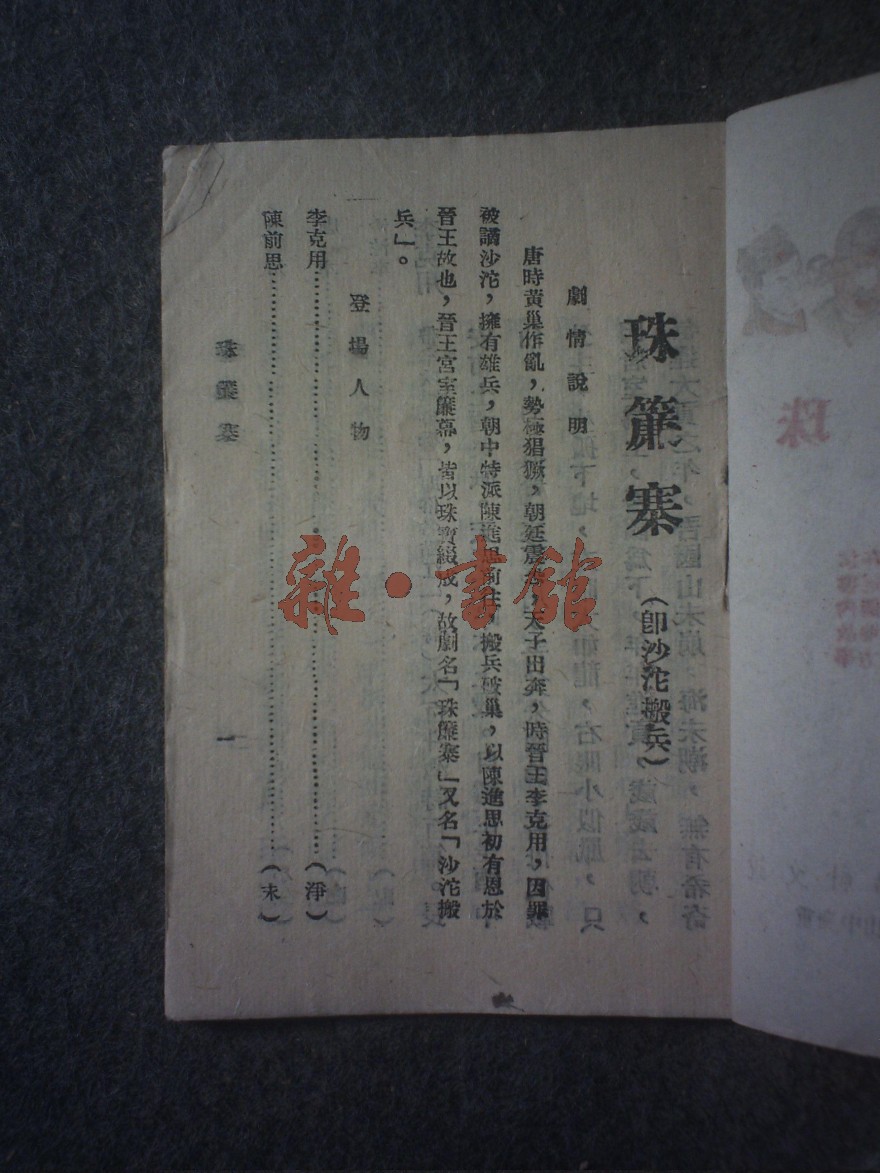 珠簾寨
（卽沙沱搬兵）
劇情說明
唐時黃巢作亂，勢極猖獗，朝廷震怒，天子出奔，時晉王李克用，因罪
被謫沙沱，擁有雄兵，朝中特派陳進思前往，搬兵破巢，以陳進思初有恩於
晉王故也，晉王宮室簾幕，皆以珠寶綴成，故劇名「珠簾寨」又名「沙沱搬
兵」。
登場人物
李克用（淨）
陳前思（末）
珠簾寨
一
雜·書館
珠